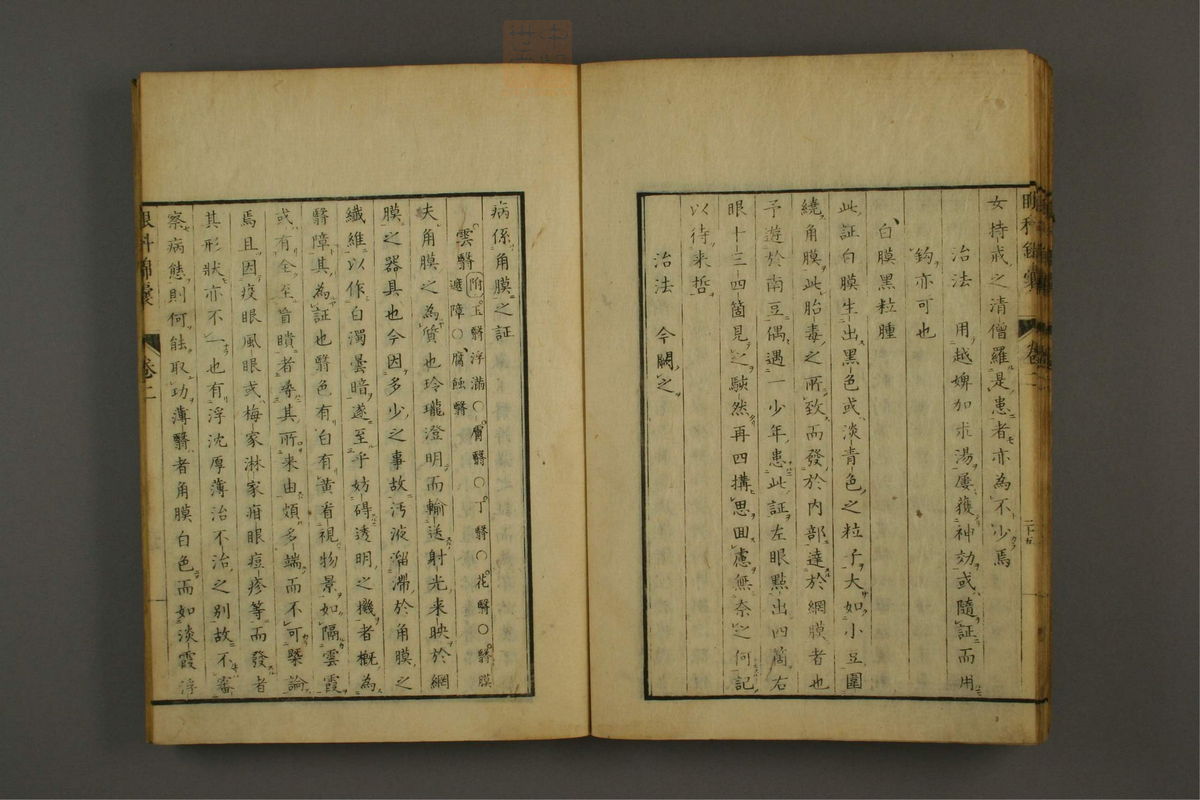 女持戒之清僧羅是患者亦為不少焉
治法 用越婢加朮湯屢獲神効或隨証而用
鈎亦可也
白膜黒粒腫
此証白膜生出黒色或淡青色之粒子大如小豆圍
繞角膜此胎毒之所致而發於内部達於網膜者也
予遊於南豆偶遇一少年患此証左眼點出四箇右
眼十三四箇見之駭然再四搆思囬慮無奈之何記
以待来哲
治法 今闕之
二十五
病係角膜之証
雲翳 附 玉翳浮滿○膚翳○丁翳○花翳○翳膜
遮障○腐蝕翳
夫角膜之為質也玲瓏澄明而輸送射光来映於網
膜之器具也今因多少之事故汚液溜滞於角膜之
纖維以作白濁曇暗遂至乎妨碍透明之機者概為
翳障其為証也翳色有白有黄看視物景如隔雲霞
或有全至盲瞶者尋其所来由頗多端而不可槩論
焉且因疫眼風眼或梅家淋家疳眼痘疹等而發者
其形狀亦不一也有浮沈厚薄治不治之別故不審
察病態則何能取功薄翳者角膜白色而如淡霞浮
眼科錦囊 卷二